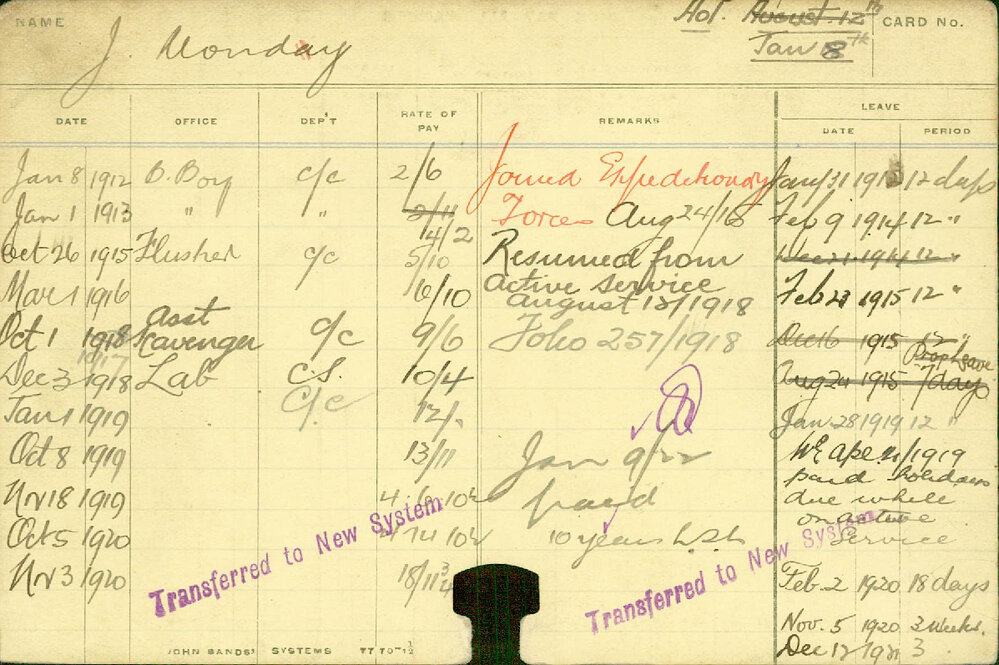 NAME
J. Monday
Apt. August. 12th
Jan 8th
CARD No.
DATE OFFICE DEP'T RATE OF PAY REMARKS LEAVE
DATE PERIOD
Jan 8 1912 B. Boy C/C 2/6 Joined Expeditionary Jany 31 1913 12 days
Jan 1 1913 " " 2/11 Forces Aug 24/15 Feb 9 1914 12 "
4/2
Oct 26 1915 Flusher C/C 5/10 Resumed from Dec 21 1914 12 "
Mar 1 1916 6/10 active service Feb 23 1915 12 "
august 12/1918
Oct 1 1918 asst Scavenger C/C 9/6 Folio 257/1918 Dec 16 1915 12 "
1917 Prop Leave
Dec 3 1918 Lab C.S. 10/4 Aug 24 1915 7 days
Jan 1 1919 C/C 12/- Jan 28 1919 12 "
Oct 8 1919 13/11 Jan 9/22 WE Ape 21/1919
Nv 18 1919 4. 6. 10½ payd paid holidays
due while
on active
Oct 5 1920 4 14 10½ 10 years L.S.L. Service
Nv 3 1920 18/11¾ Feb. 2 1920 18 days
Nov. 5 1920 3 Weeks.
Dec 12 1921 3
Transferred to New System
Transferred to New System
JOHN SANDS' SYSTEMS